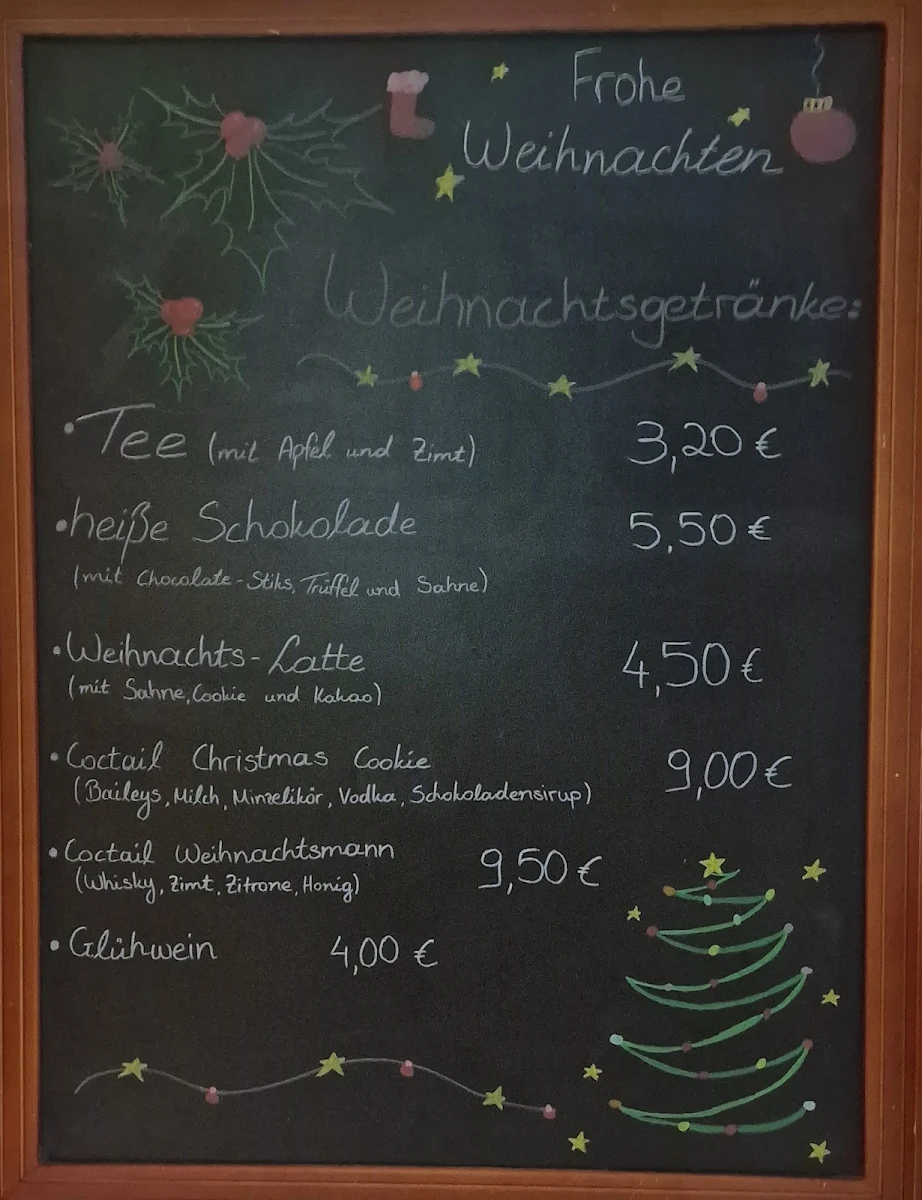 Frohe
Weihnachten
Weihnachtsgetränke:
• Tee (mit Apfel und Zimt) 3,20 €
• heiße Schokolade 5,50 €
(mit Chocolate-Stiks, Trüffel und Sahne)
• Weihnachts-Latte 4,50 €
(mit Sahne, Cookie und Kakao)
• Coctail Christmas Cookie 9,00 €
(Baileys, Milch, Minzelikör, Vodka, Schokoladensirup)
• Coctail Weihnachtsmann 9,50 €
(Whisky, Zimt, Zitrone, Honig)
• Glühwein 4,00 €